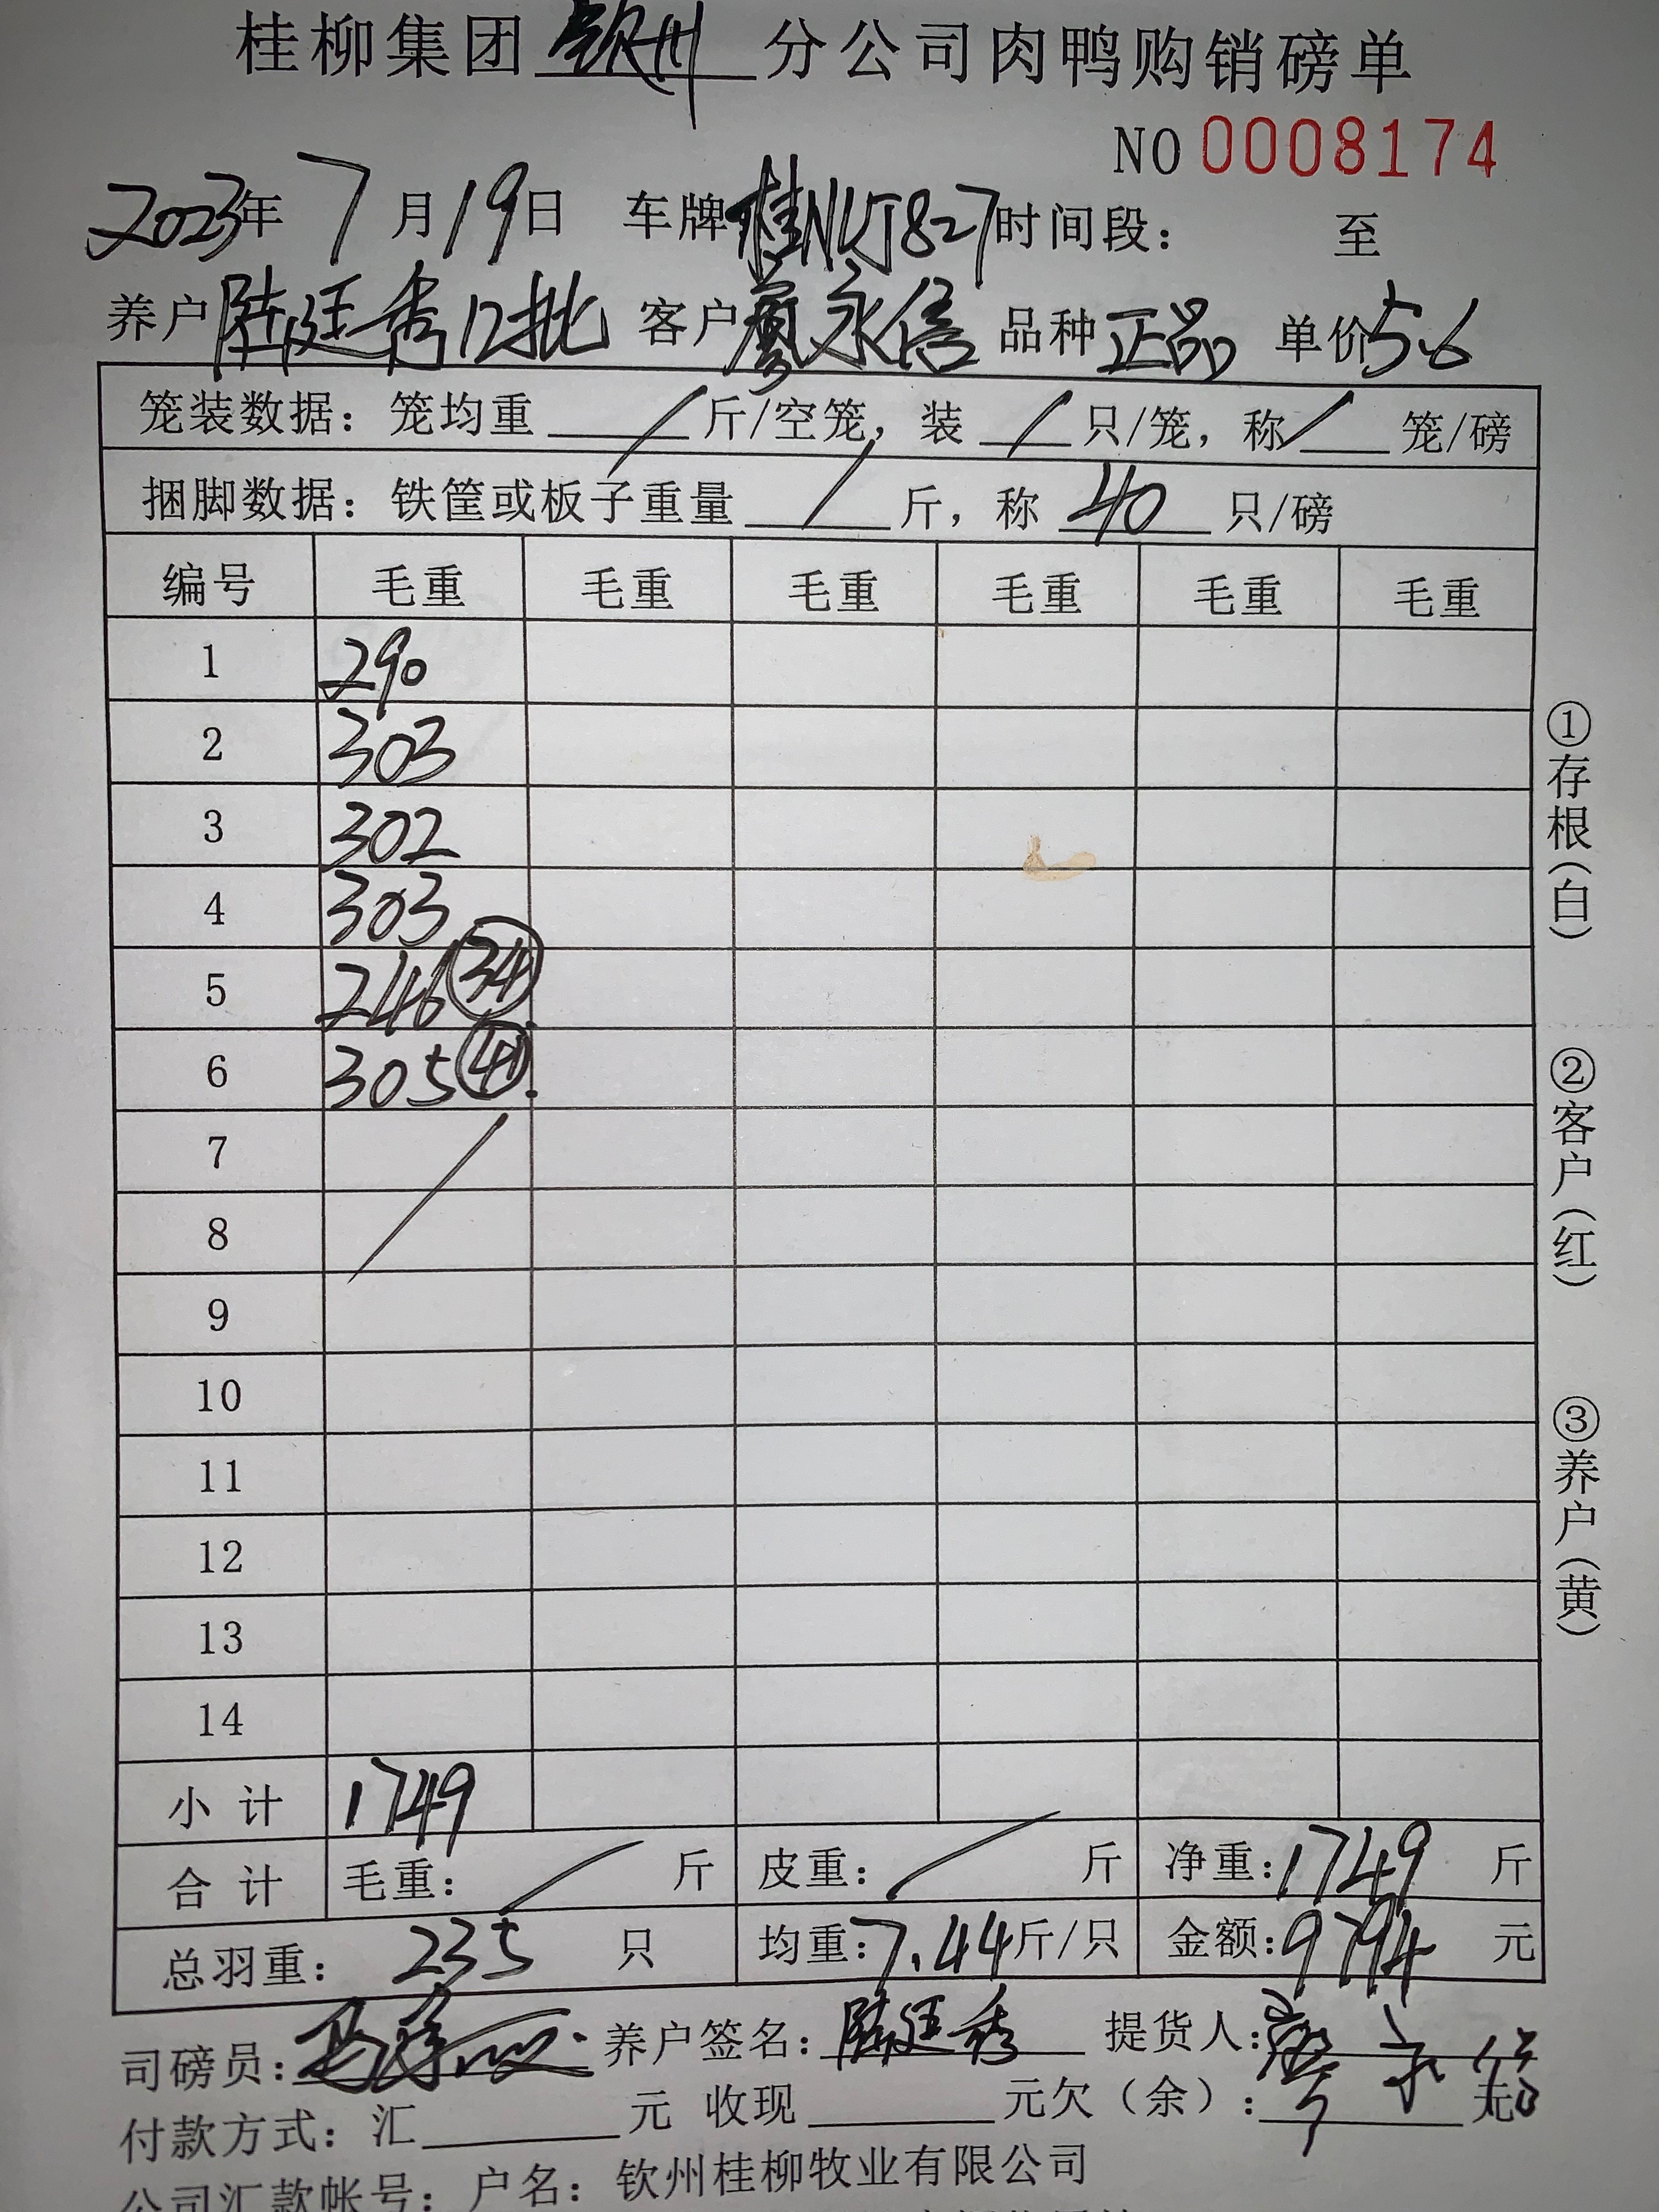 桂柳集团钦州分公司肉鸭购销磅单
NO 0008174
2023年7月19日 车牌桂NKJ827时间段： 至
养户陆廷秀12批 客户廖永信 品种正品 单价5.6
笼装数据：笼均重／斤/空笼，装／只/笼，称／笼/磅
捆脚数据：铁筐或板子重量／斤，称40只/磅
编号 毛重 毛重 毛重 毛重 毛重 毛重
1 290
2 303
3 302
4 303
5 246 34
6 305 41
7
8
9
10
11
12
13
14
小计 1749
合计 毛重：／斤 皮重：／斤 净重：1749斤
总羽重：235只 均重：7.44斤/只 金额：9794元
司磅员： 养户签名：陆廷秀 提货人：廖永信
付款方式：汇 元 收现 元欠（余）： 元
公司汇款帐号：户名：钦州桂柳牧业有限公司
①存根（白）
②客户（红）
③养户（黄）